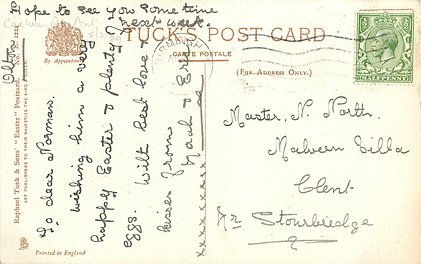 Hope to see you some time
next week.
TUCK'S POST CARD
CARTE POSTALE
(FOR ADDRESS ONLY.)
By Appointment
BIRMINGHAM
HALFPENNY
To dear Norman.
wishing him a very
happy Easter & plenty of
Eggs. With best love &
kisses from
& Eric
xxxxxxxxxx
Master. N. North.
Malvern Villa
Clent
Nr Stourbridge
Raphael Tuck & Sons' "Easter" Postcard, No. E. 1222.
ART PUBLISHERS TO THEIR MAJESTIES THE KING
Printed in England